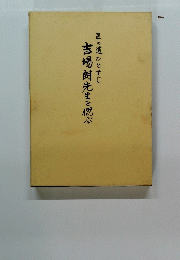 匠の道ひとすじ
吉場潤先生を偲ぶ